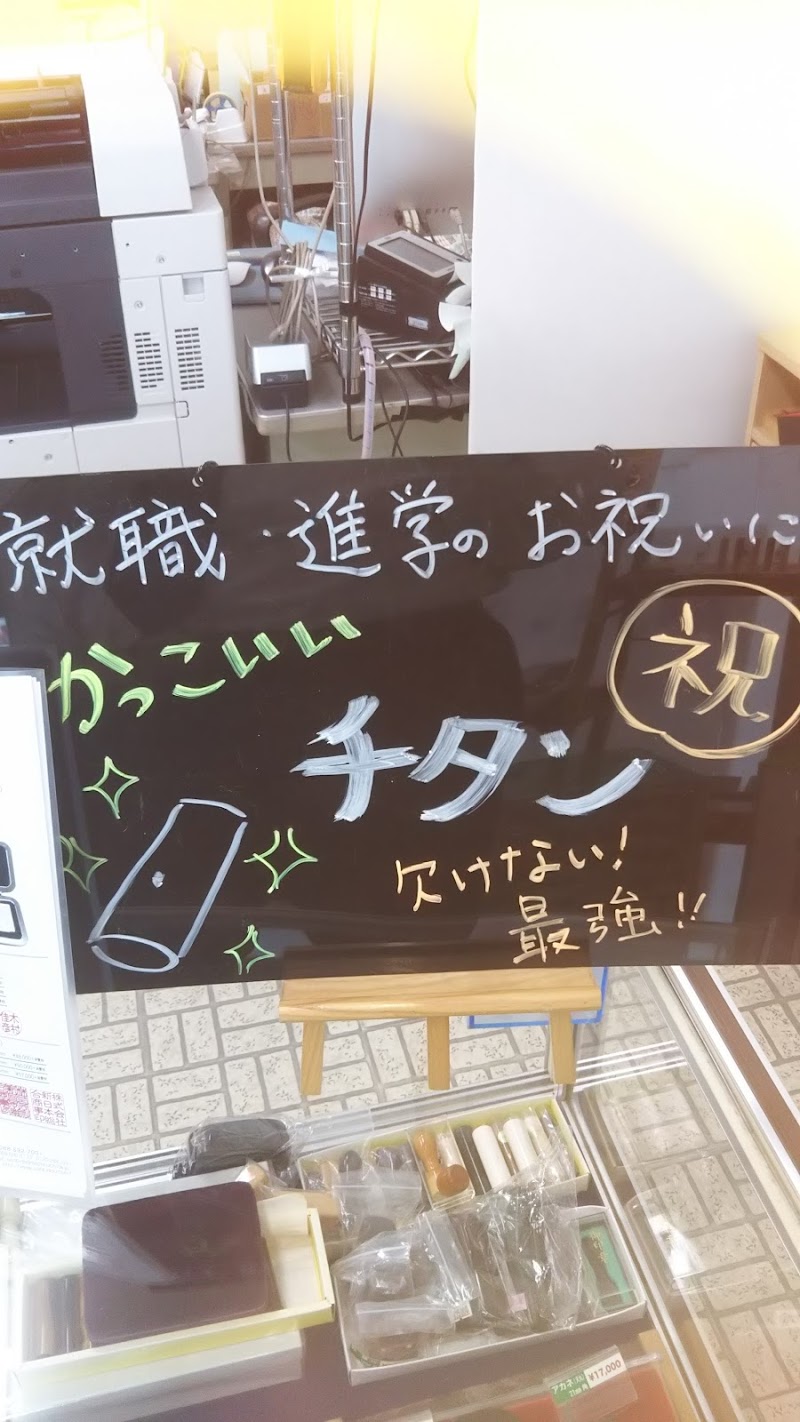 就職・進学のお祝いに
祝
かっこいい
チタン
欠けない!
最強!!
アカネ
¥17,000